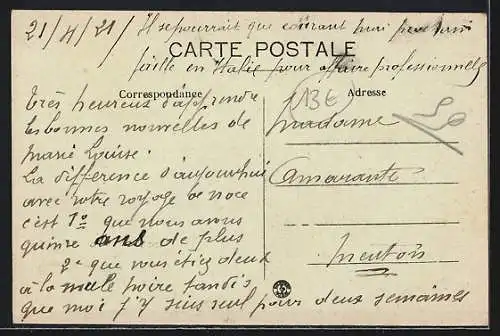 21/4/21 / Il se pourrait que courant mai prochain
CARTE POSTALE
faille en Italie pour affaire professionnelle
Correspondance
Adresse
(13€)
Très heureux d'apprendre
les bonnes nouvelles de
Marie Louise.
La différence d'aujourd'hui
avec votre voyage de noce
c'est 1º que nous avons
quinze ans de plus
2º que vous étiez deux
à la malle noire tandis
que moi j'y suis seul pour deux semaines
Madame
Amarante
Menton